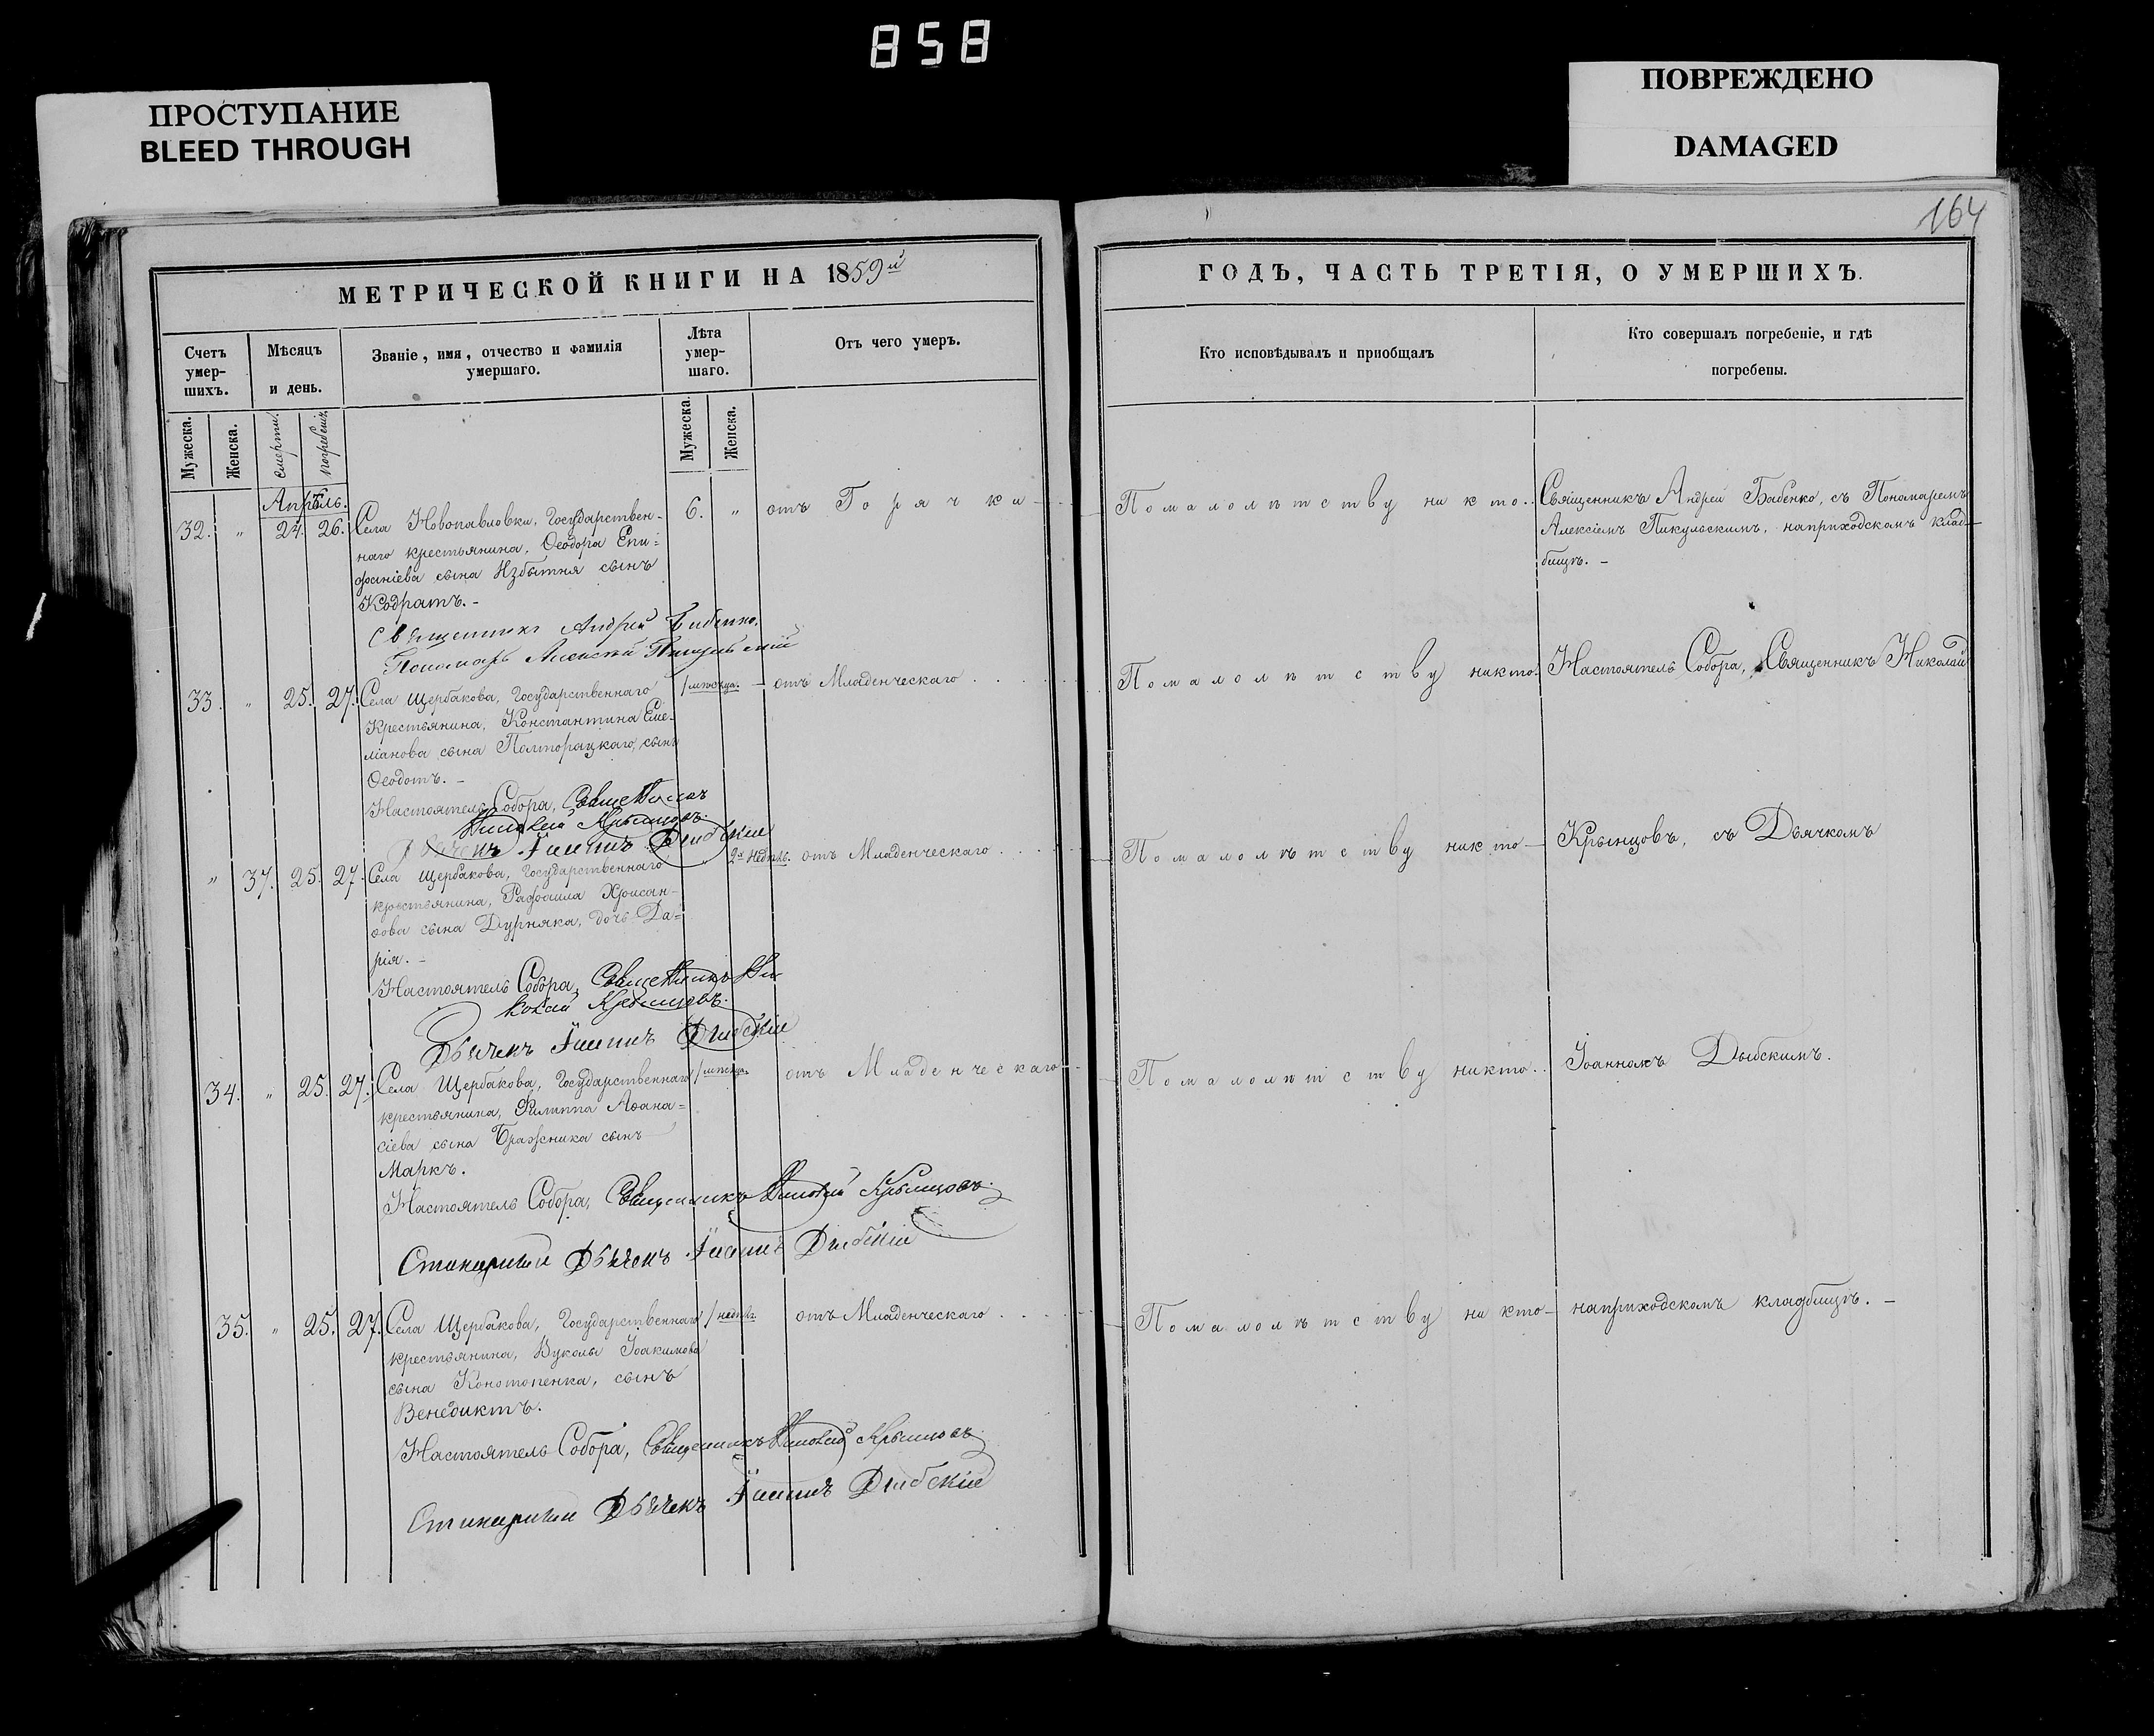 858
ПРОСТУПАНИЕ
BLEED THROUGH
ПОВРЕЖДЕНО
DAMAGED
164
МЕТРИЧЕСКОЙ КНИГИ НА 1859й
Счетъ умер-шихъ.
Мѣсяцъ и день.
Званіе, имя, отчество и фамилія умершаго.
Лѣта умер-шаго.
Отъ чего умеръ.
Мужеска.
Женска.
смерти.
погребенія.
Мужеска.
Женска.
Апрѣль.
32. " 24. 26. Села Новопавловки, Государствен-
наго крестьянина, Ѳеодора Епи-
фаніева сына Избытня сынъ
Кодратъ.-
6. " отъ Горячки
Священникъ Андрей Бабенко.
Пономарь Алексѣй Пикульскій
33. " 25. 27. Села Щербакова, Государственнаго
Крестьянина, Константина Еме-
ліанова сына Полторацкаго, сынъ
Ѳеодотъ. -
1 мѣсяца. - отъ Младенческаго . . .
Настоятель Собора, Священникъ
Николай Крынцовъ.
Дьячекъ Іоаннъ Дыбскій
" 37. 25. 27. Села Щербакова, Государственнаго
крестьянина, Рафаила Хрисан-
ѳова сына Дурняка, дочь Да-
рія. -
2х недѣль. отъ Младенческаго . . .
Настоятель Собора, Священникъ Ни
колай Крынцовъ.
Дьячекъ Іоаннъ Дыбскій
34. " 25. 27. Села Щербакова, Государственнаго
крестьянина, Филиппа Аѳана-
сіева сына Бражника сынъ
Маркъ.
1 мѣсяца. отъ Младенческаго
Настоятель Собора, Священникъ Николай Крынцовъ.
Дьячекъ Іоаннъ Дыбскій
35. " 25. 27. Села Щербакова, Государственнаго
крестьянина, Вуколы Іоакимова
сына Конотопенка, сынъ
Венедиктъ.
1 недѣл. отъ Младенческаго . . .
Настоятель Собора, Священникъ Николай Крынцовъ.
Дьячекъ Іоаннъ Дыбскій
ГОДЪ, ЧАСТЬ ТРЕТІЯ, О УМЕРШИХЪ.
Кто исповѣдывалъ и пріобщалъ
Кто совершалъ погребеніе, и гдѣ
погребены.
По малолѣтству никто.
Священникъ Андрей Бабенко, съ Пономаремъ
Алексіемъ Пикульскимъ, наприходскомъ клад-
бищѣ. -
По малолѣтству никто.
Настоятель Собора, Священникъ Николай
По малолѣтству никто
Крынцовъ, съ Дьячкомъ
По малолѣтству никто.
Іоанномъ Дыбскимъ.
По малолѣтству никто
наприходскомъ кладбищѣ. -